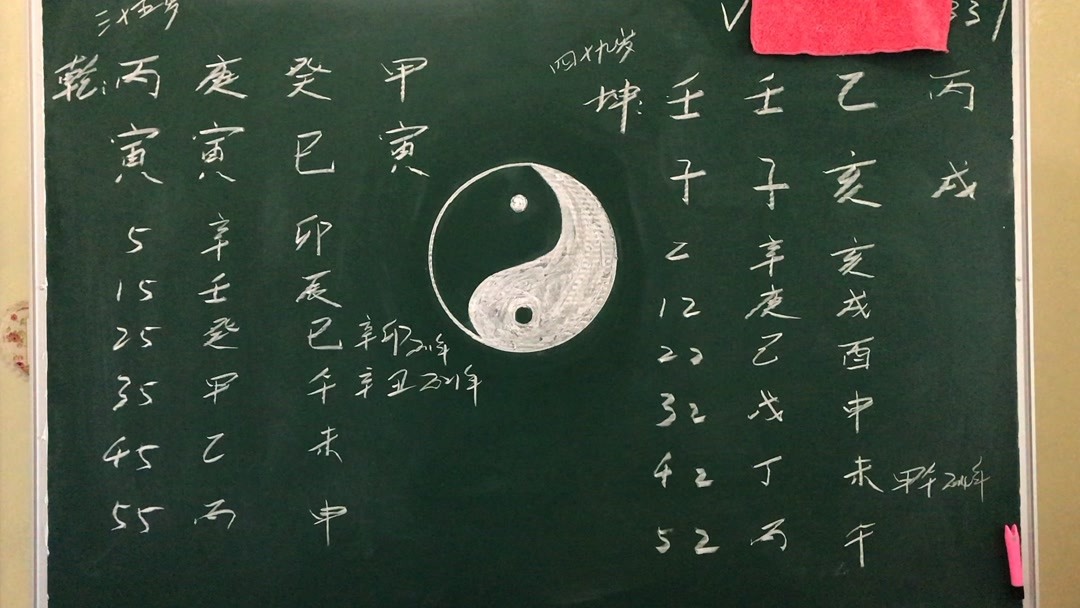 三十五岁
乾:丙 庚 癸 甲
寅 寅 巳 寅
5 辛 卯
15 壬 辰
25 癸 巳 辛卯2011年
35 甲 午 辛丑2021年
45 乙 未
55 丙 申
四十九岁
坤:壬 壬 乙 丙
子 子 亥 戌
2 辛 亥
12 庚 戌
22 己 酉
32 戊 申
42 丁 未 甲午2014年
52 丙 午